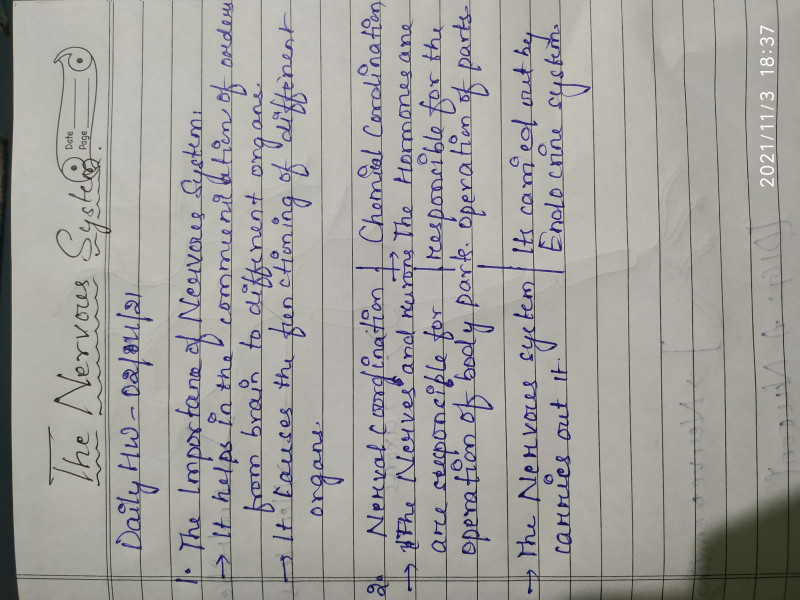 Date
Page
The Nervous System
Daily HW - 02/11/21
1. The Importane of Neervous System:
→ It helps in the communication of orders
from brain to different organs.
→ It causes the functioning of different
organs.
2. Nerval Coordination | Chemial Coordination
→ The Nerves and → The Hormones are
are responcible for | responcible for the
operation of body park. operation of parts
→ The Nervous system | Its carried out by
carries out it. | Endocrine system.
2021/11/3 18:37